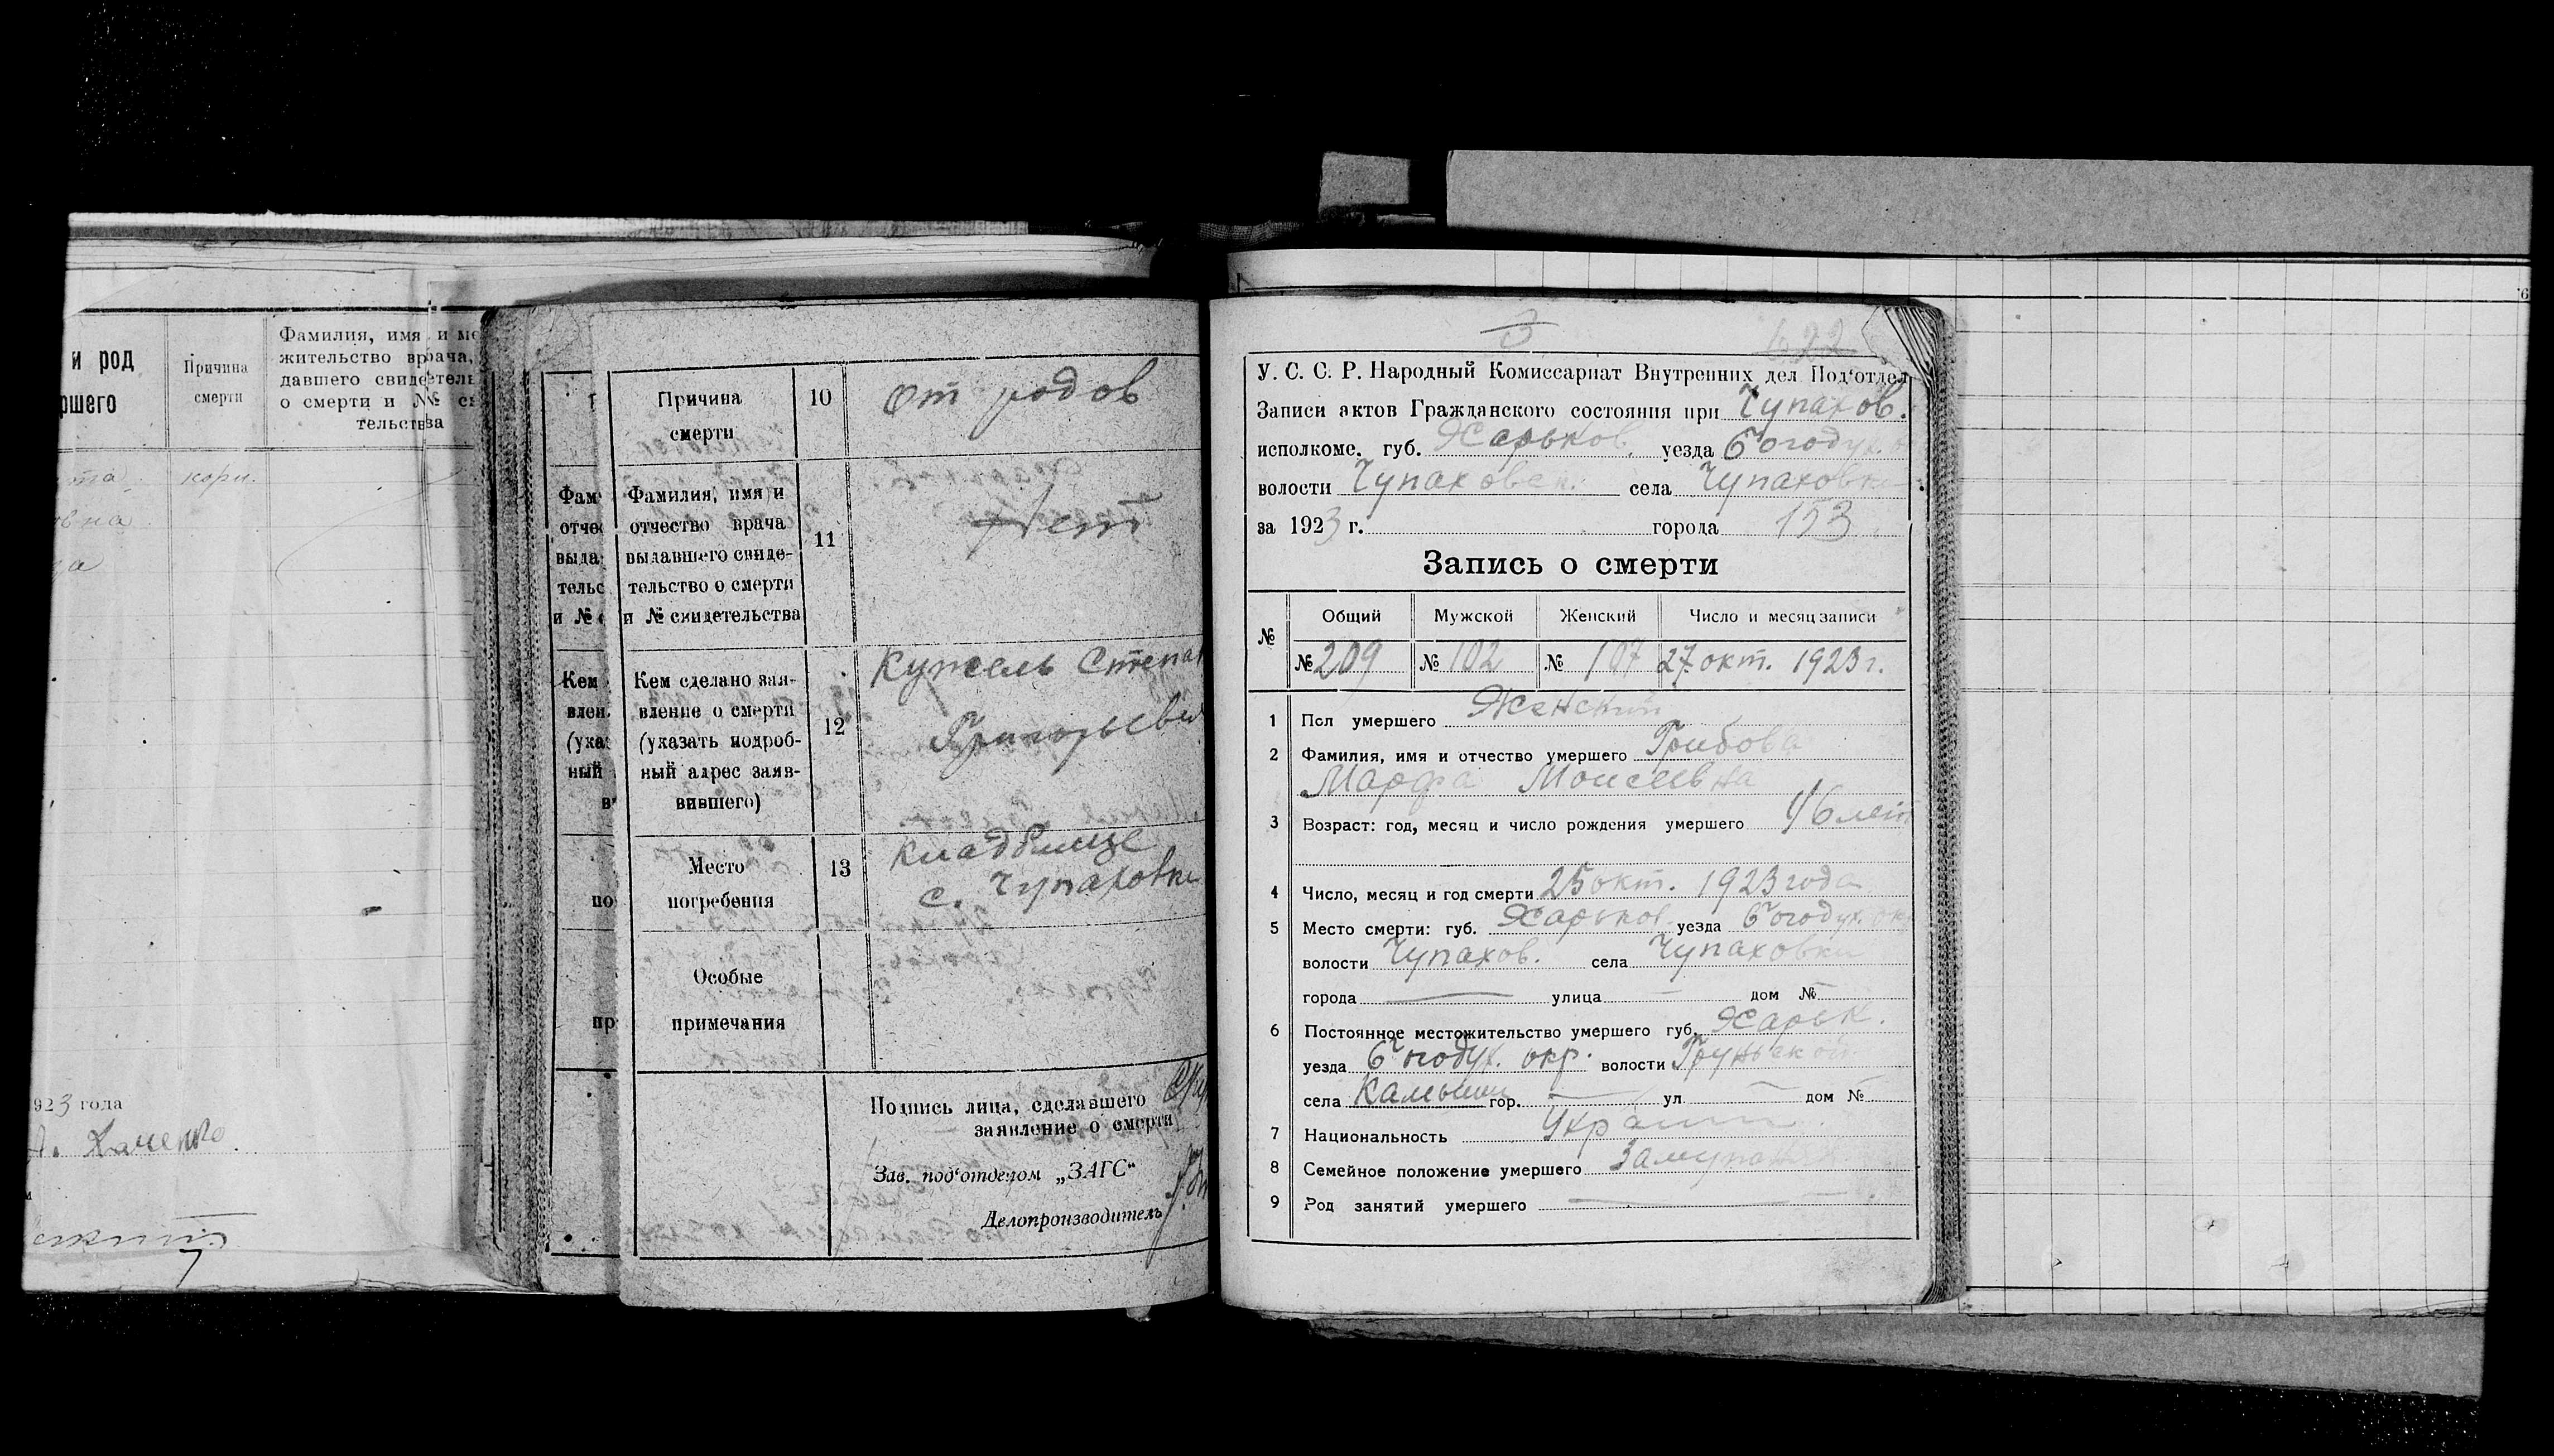 и род
ршего
Причина
смерти
Фамилия, имя и ме
жительство врача,
давшего свидетель
о смерти и №№ св
тельства
та
кори.
вна
923 года
Причина
смерти
10
От родов
Фам
отче
выда
тельс
и №
Фамилия, имя и
отчество врача
выдавшего свиде-
тельство о смерти
и № свидетельства
11
Нет
Кем
влен.
(ука
ный
Кем сделано зая-
вление о смерти
(указать подроб-
ный адрес заяв-
вившего)
12
Кужель Степан
Григорьеви
по
Место
погребения
13
Кладбище
с. Чупаховки
пр
Особые
примечания
Подпись лица, сделавшего
заявление о смерти
Зав. под‘отделом „ЗАГС“
Делопроизводитель
3
622
У. С. С. Р. Народный Комиссариат Внутренних дел Под‘отдел
Записи актов Гражданского состояния при Чупахов.
исполкоме. губ. Харьков. уезда Богодух.
волости Чупаховск. села Чупаховки
за 1923 г. города 153
Запись о смерти
№ Общий Мужской Женский Число и месяц записи
№ 209 № 102 № 107 27 окт. 1923 г.
1 Пол умершего Женский
2 Фамилия, имя и отчество умершего Грибова
Марфа Моисеевна
3 Возраст: год, месяц и число рождения умершего 46 лет
4 Число, месяц и год смерти 25 окт. 1923 года
5 Место смерти: губ. Харьков. уезда Богодух. ок
волости Чупахов. села Чупаховки
города улица дом №
6 Постоянное местожительство умершего губ. Харьк.
уезда Богодух. окр. волости Груньской
села Камыши гор. ул. дом №
7 Национальность
8 Семейное положение умершего
9 Род занятий умершего